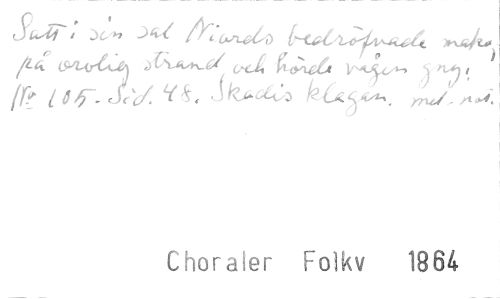 Satt i sin sal Niords bedröfvade maka,
på orolig strand och hörde vågen gny.
No 105. Sid. 48. Skadis klagan. mel. not.
Choraler Folkv 1864